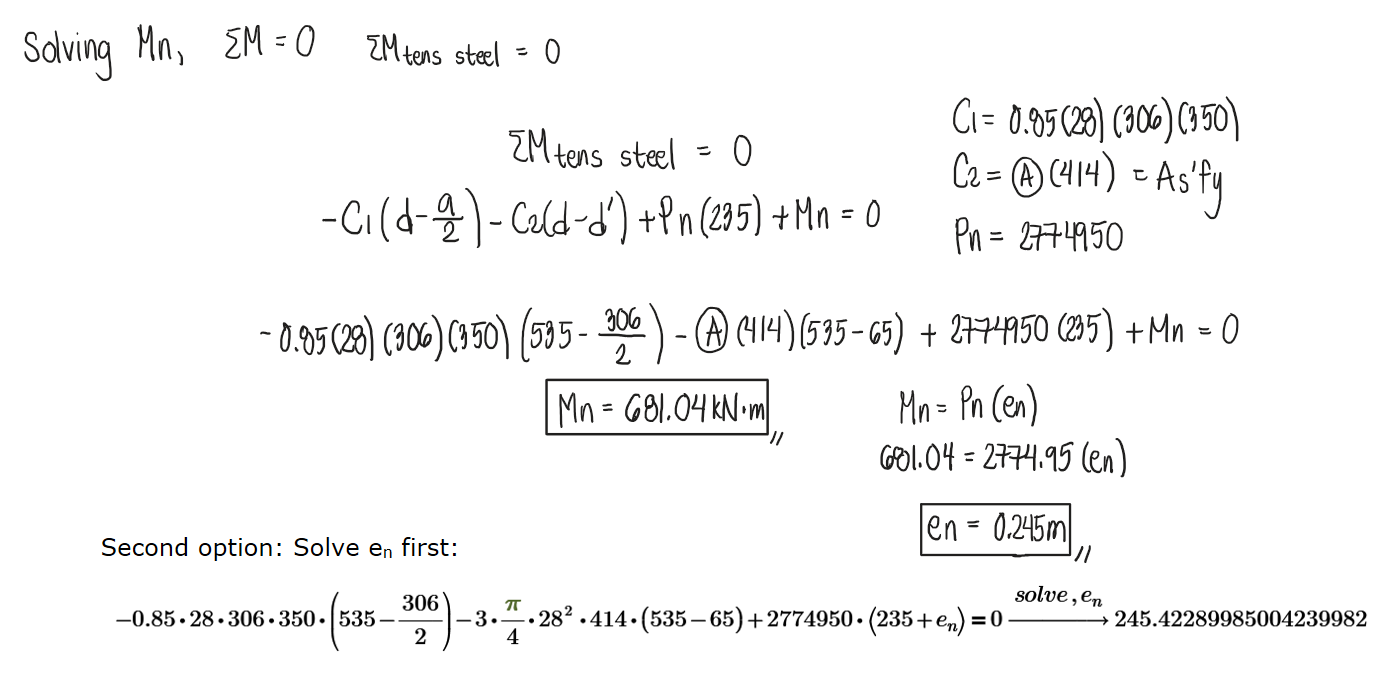 Solving Mn, ΣM = 0 ΣMtens steel = 0
ΣMtens steel = 0
C1 = 0.85(28)(306)(350)
C2 = Ⓐ(414) = As'fy
-C1(d-a/2) - C2(d-d') + Pn(235) + Mn = 0
Pn = 2774950
-0.85(28)(306)(350)(535 - 306/2) - Ⓐ(414)(535-65) + 2774950(235) + Mn = 0
Mn = 681.04 kN·m //
Mn = Pn(en)
681.04 = 2774.95(en)
en = 0.245m //
Second option: Solve eₙ first:
−0.85·28·306·350·(535−306/2)−3·π/4·28²·414·(535−65)+2774950·(235+eₙ)=0 solve,eₙ → 245.42289985004239982